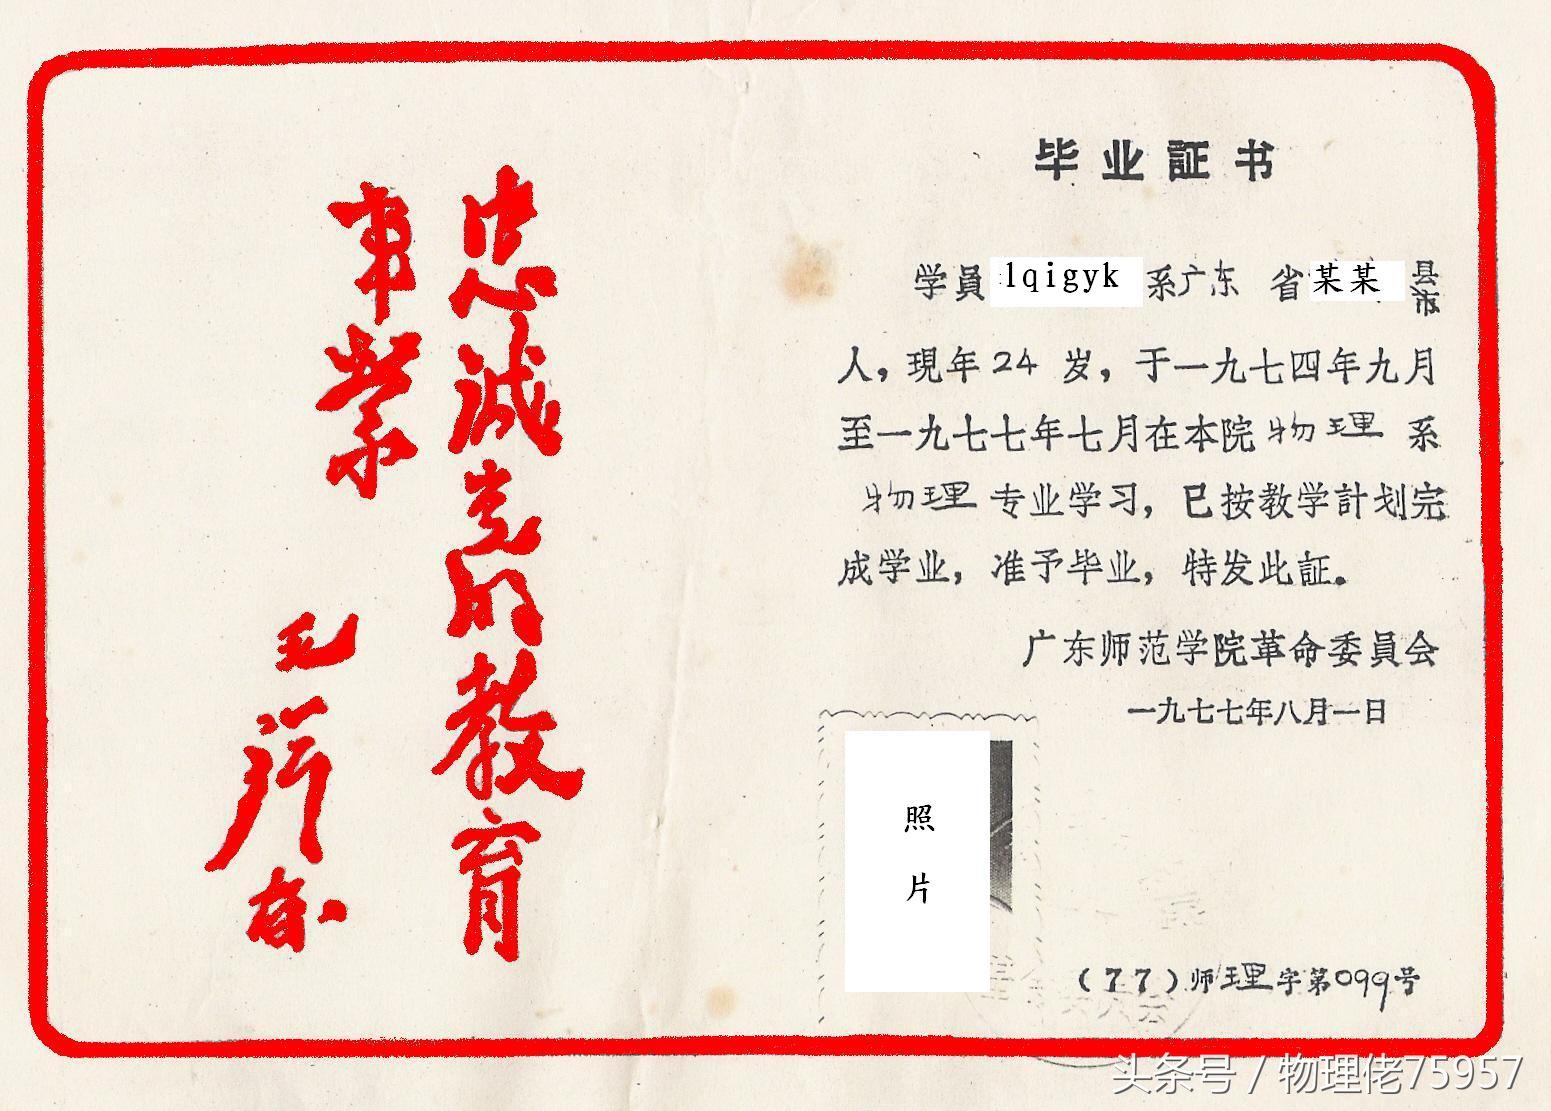 忠誠党的教育
事業
毛泽东
毕业証书
学員 lqigyk 系广东 省 某某 县市
人，現年 24 岁，于一九七四年九月
至一九七七年七月在本院 物理 系
物理 专业学习，已按教学計划完
成学业，准予毕业，特发此証。
广东师范学院革命委員会
一九七七年八月一日
照
片
(77)师理字第099号
头条号 / 物理佬75957